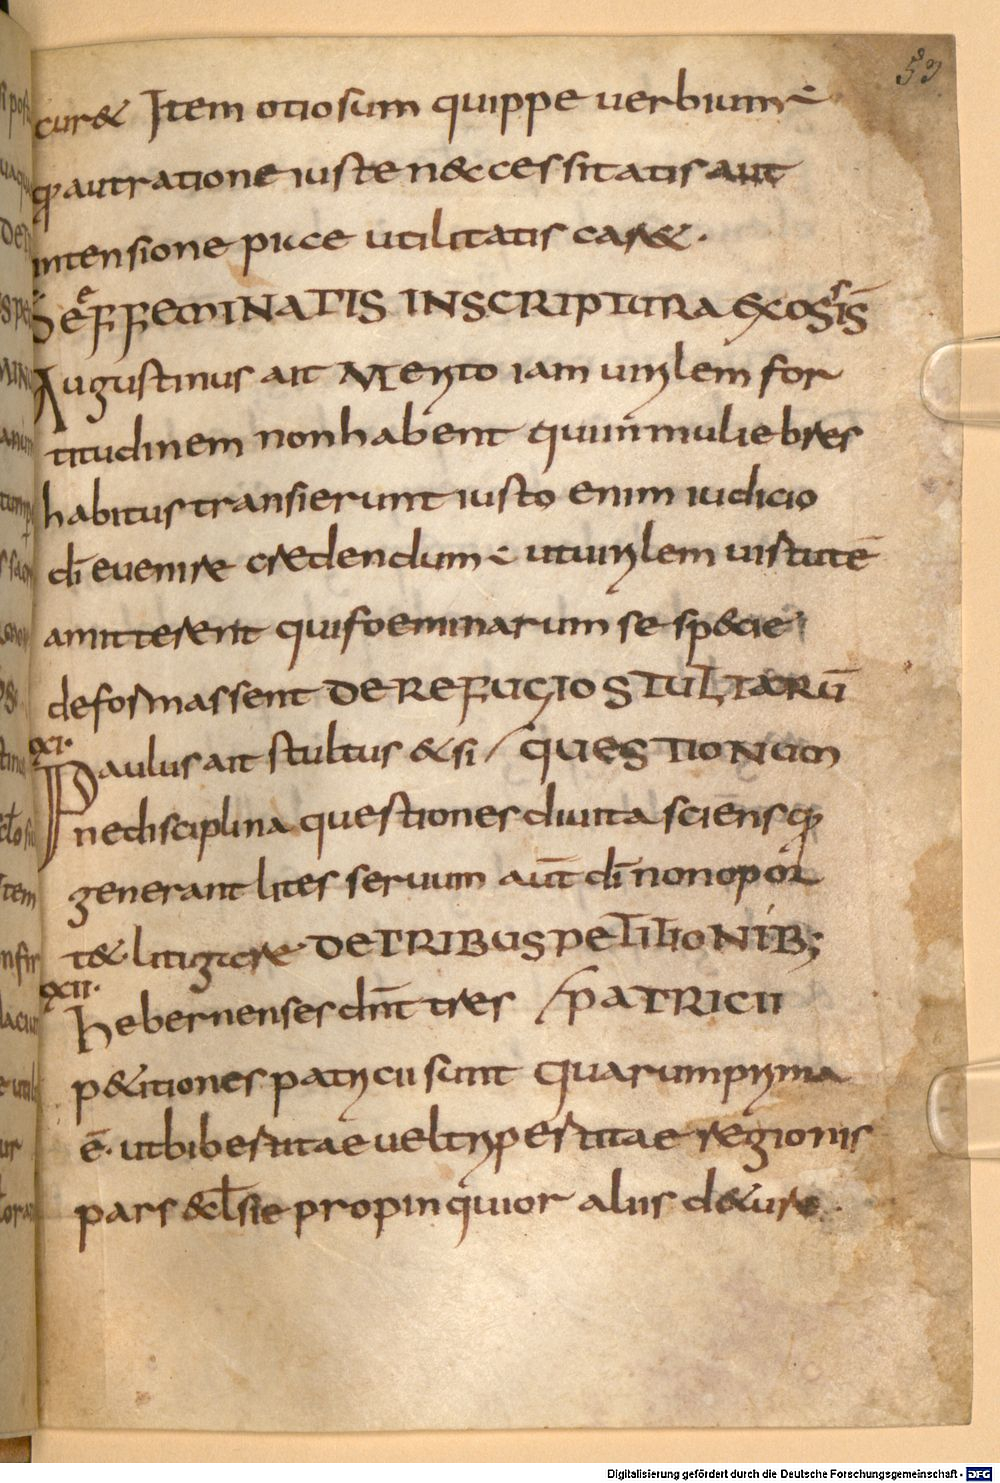 53
cur& Item otiosum quippe uerbium ÷
qđ aut ratione iuste n&cessitatis aut
intensione piæ utilitatis car&.
De effeminatis IN SCRIPTURA
Augustinus ait Merito iam uirilem for
titudinem non habent qui in muliebres
habitus transierunt iusto enim iudicio
dī euenire credendum ÷ ut uirilem uirtutē
amitterent qui foeminarum se sp&cie
deformassent DE REFUGIO STULTARŪ
XCI. Paulus ait stultus &si / QUESTIONUM
ne disciplina questiones diuita sciens qđ
generant lites seruum aūt dī non opor
t& litigare DE TRIBUS PETITIONIB;
XCII. hebernenses dn̄t tres / PATRICII
p&itiones patricii sunt quarum prima
ē. ut bibertitae uel tripertitae regionis
pars &cl̄sie propinquior aliis d&ure.
Digitalisierung gefördert durch die Deutsche Forschungsgemeinschaft - DFG